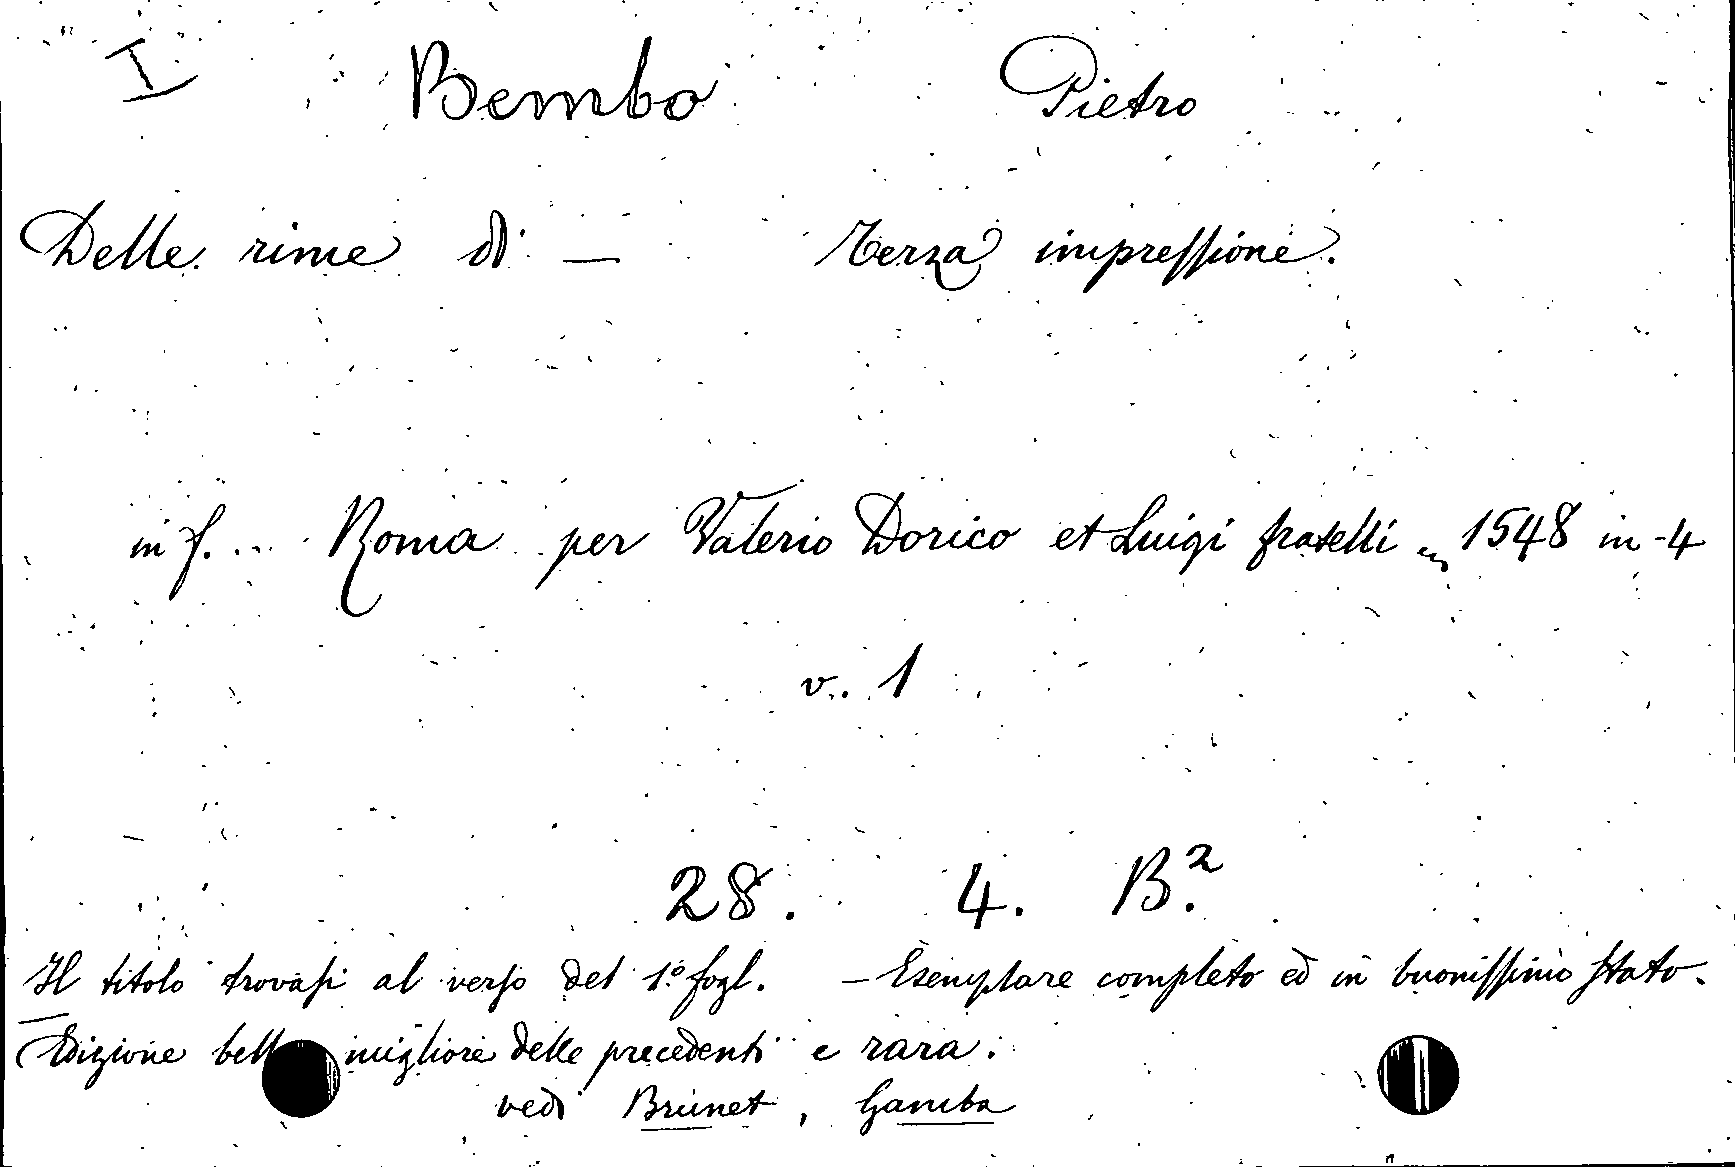 I Bembo Pietro
Delle rime di — Terza impressione.
in f. ... Roma per Valerio Dorico et Luigi fratelli 1548 in-4
v. 1
28. 4. B².
Il titolo trovasi al verso del 1.º fogl. — Esemplare completo ed in buonissimo stato.
— Edizione bella migliore delle precedenti e rara.
vedi Brunet, Gamba